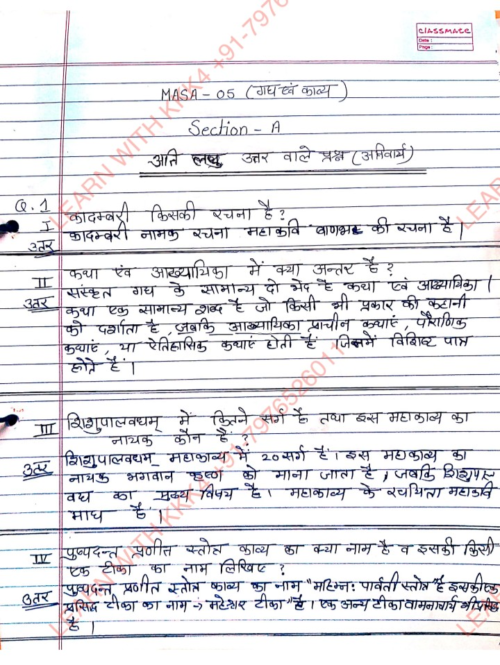 CLASSMATE
Date :
Page :
MASA - 05 (गद्य एवं काव्य)
Section - A
अति लघु उत्तर वाले प्रश्न (अनिवार्य)
Q. 1
I कादम्बरी किसकी रचना है ?
उत्तर कादम्बरी नामक रचना महाकवि बाणभट्ट की रचना है |
II कथा एवं आख्यायिका में क्या अन्तर है ?
उत्तर संस्कृत गद्य के सामान्य दो भेद है कथा एवं आख्यायिका |
कथा एक सामान्य शब्द है जो किसी भी प्रकार की कहानी
को दर्शाता है, जबकि आख्यायिका प्राचीन कथाएं, पौराणिक
कथाएं, या ऐतिहासिक कथाएं होती हैं जिसमें विशिष्ट पात्र
होते हैं |
III शिशुपालवधम् में कितने सर्ग है तथा इस महाकाव्य का
नायक कौन है ?
उत्तर शिशुपालवधम् महाकाव्य में 20 सर्ग है | इस महाकाव्य का
नायक भगवान कृष्ण को माना जाता है, जबकि शिशुपाल
वध का मुख्य विषय है | महाकाव्य के रचयिता महाकवि
माघ है |
IV पुष्पदन्त प्रणीत स्तोत्र काव्य का क्या नाम है व इसकी किसी
एक टीका का नाम लिखिए ?
उत्तर पुष्पदन्त प्रणीत स्तोत्र काव्य का नाम "महिम्न: पार्वती स्तोत्र है इसकी एक
प्रसिद्ध टीका का नाम → महेश्वर टीका" है | एक अन्य टीका वामनाचार्य की
है |
LEARN WITH KKK4 +91-7976526011